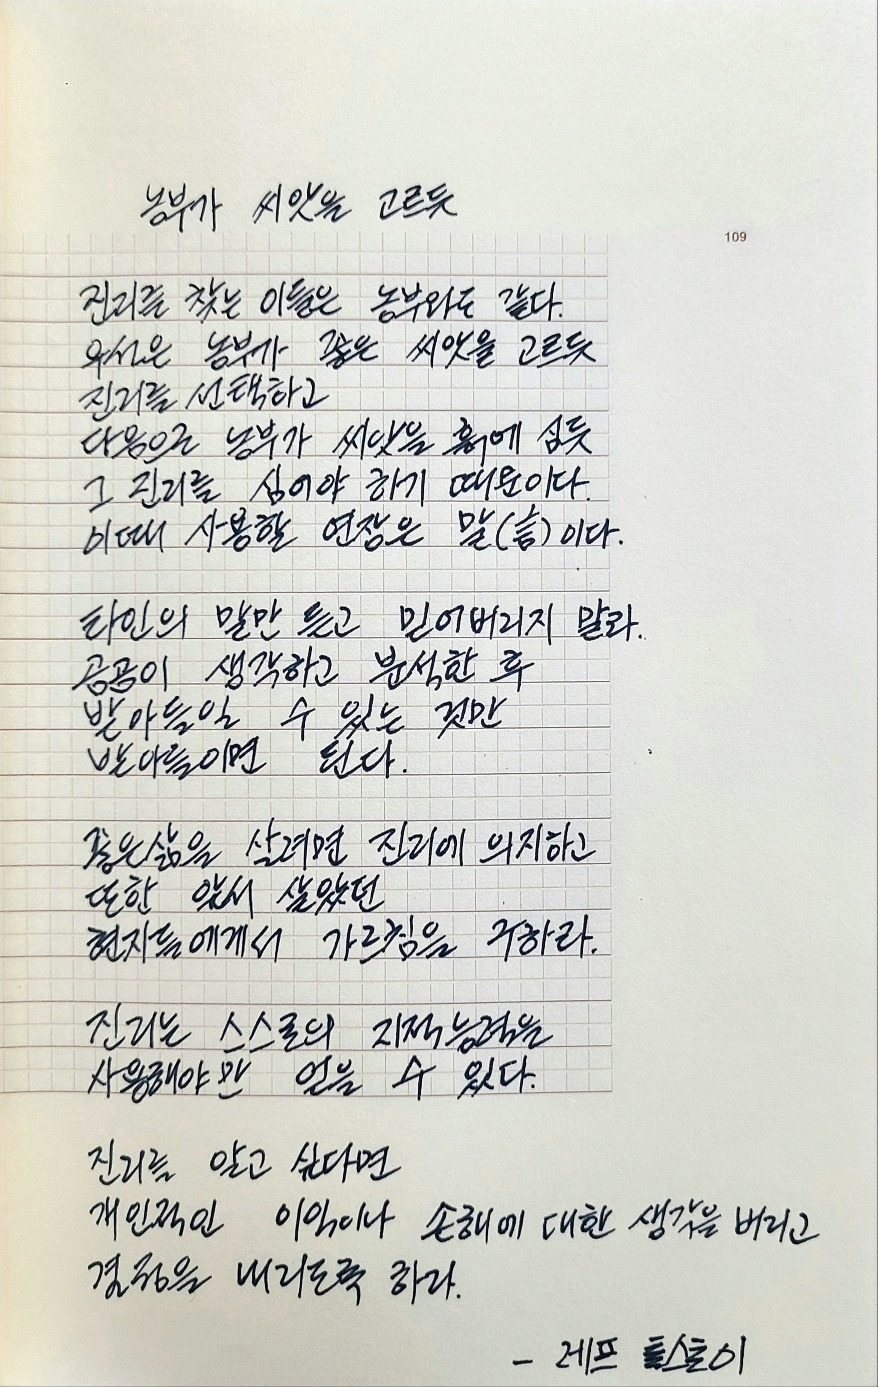 농부가 씨앗을 고르듯
109
진리를 찾는 이들은 농부와도 같다.
우선은 농부가 좋은 씨앗을 고르듯
진리를 선택하고
다음으로 농부가 씨앗을 흙에 심듯
그 진리를 심어야 하기 때문이다.
이때 사용할 연장은 말(言)이다.
타인의 말만 듣고 믿어버리지 말라.
곰곰이 생각하고 분석한 후
받아들일 수 있는 것만
받아들이면 된다.
좋은 삶을 살려면 진리에 의지하고
또한 앞서 살았던
현자들에게서 가르침을 구하라.
진리는 스스로의 지적능력을
사용해야만 얻을 수 있다.
진리를 알고 싶다면
개인적인 이익이나 손해에 대한 생각을 버리고
결정을 내리도록 하라.
- 레프 톨스토이